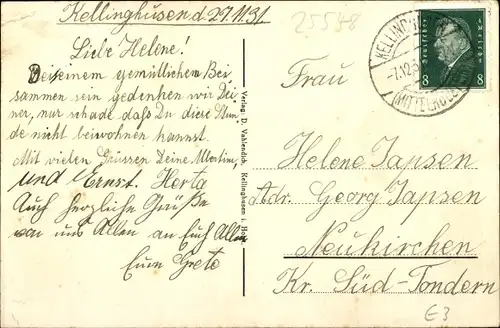 Kellinghusen d 29.11.31.
Liebe Helene!
Bei einem gemütlichem Bei
sammen sein gedenken wir Dei
ner, nur schade daß Du diese Stun
de nicht beiwohnen kannst.
Mit vielen Grüssen Deine
und Ernst. Herta
Auch herzliche Grüße
von uns Allen an Euch Allen
Eure Grete
Verlag D. Vahlendick, Kellinghusen i. Hol
25548
KELLINGH
-7.12.3
(MITTELHOLST
Deutsches Reich
8 8
Frau
Helene Japsen
Adr. Georg Japsen
Neukirchen
Kr. Süd-Tondern
E3